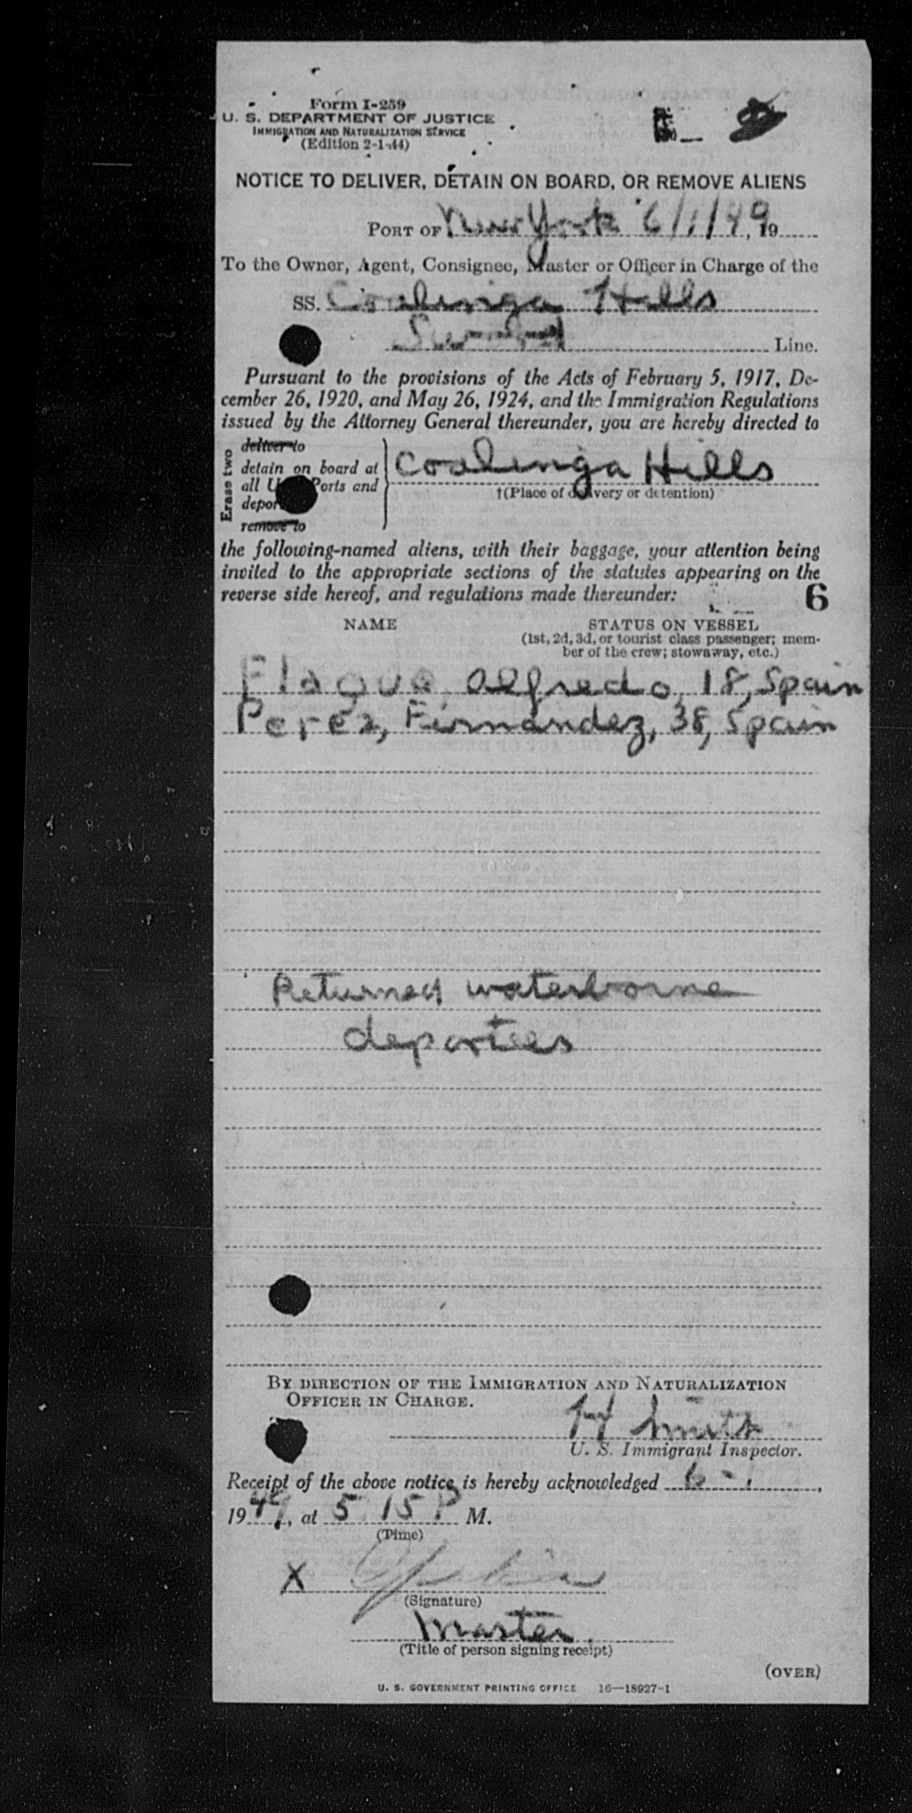 Form I-259
U. S. DEPARTMENT OF JUSTICE
IMMIGRATION AND NATURALIZATION SERVICE
(Edition 2-1-44)
NOTICE TO DELIVER, DETAIN ON BOARD, OR REMOVE ALIENS
PORT OF New York 6/1/49, 19
To the Owner, Agent, Consignee, Master or Officer in Charge of the
SS. Coalinga Hills
Line.
Pursuant to the provisions of the Acts of February 5, 1917, De-
cember 26, 1920, and May 26, 1924, and the Immigration Regulations
issued by the Attorney General thereunder, you are hereby directed to
Erase two
deliver to
detain on board at
all Ports and
depor
remove to
Coalinga Hills
†(Place of delivery or detention)
the following-named aliens, with their baggage, your attention being
invited to the appropriate sections of the statutes appearing on the
reverse side hereof, and regulations made thereunder:
6
NAME STATUS ON VESSEL
(1st, 2d, 3d, or tourist class passenger; mem-
ber of the crew; stowaway, etc.)
Flaque, Alfredo, 18, Spain
Perez, Firnandez, 38, Spain
Returned waterborne
deportees
BY DIRECTION OF THE IMMIGRATION AND NATURALIZATION
OFFICER IN CHARGE.
H Smith
U. S. Immigrant Inspector.
Receipt of the above notice is hereby acknowledged 6-1,
1949, at 5 15 P M.
(Time)
X
(Signature)
Master.
(Title of person signing receipt)
(OVER)
U. S. GOVERNMENT PRINTING OFFICE 16—18927-1